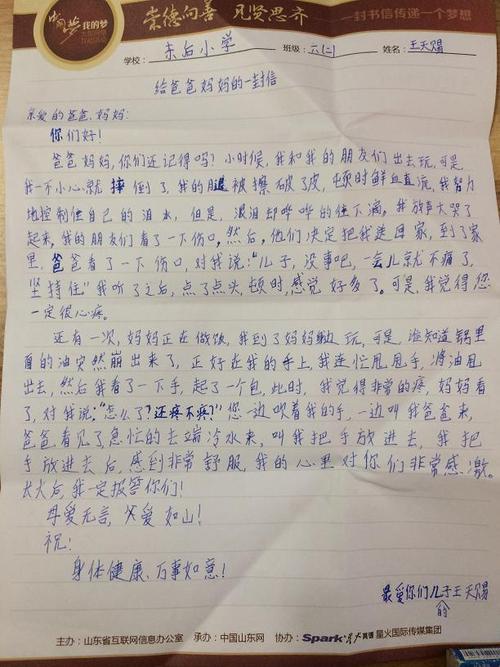 中国梦 我的梦
崇德向善 见贤思齐
一封书信传递一个梦想
学校: 朱后小学 班级: 六(二) 姓名: 王天赐
给爸爸妈妈的一封信
亲爱的爸爸、妈妈:
你们好!
爸爸妈妈,你们还记得吗?小时候,我和我的朋友们出去玩,可是,
我一不小心就摔倒了,我的腿被擦破了皮,顿时鲜血直流,我努力
地控制住自己的泪水,但是,眼泪却哗哗的往下滴。我放声大哭了
起来,我的朋友们看了一下伤口。然后,他们决定把我送回家,到了家
里,爸爸看了一下伤口,对我说:“儿子,没事吧,一会儿就不痛了,
坚持住”我听了之后,点了点头,顿时,感觉好多了。可是,我觉得您
一定很心疼。
还有一次,妈妈正在做饭,我到了妈妈边玩,可是,谁知道锅里
面的油突然崩出来了,正好在我的手上,我连忙甩甩手,将油甩
出去,然后我看了一下手,起了一个包,此时,我觉得非常的疼,妈妈看
了,对我说:“怎么了?还疼不疼?”您一边吹着我的手,一边叫我爸爸来,
爸爸看见了急忙的去端冷水来,叫我把手放进去,我把
手放进去后,感到非常舒服,我的心里对你们非常感激。
长大后,我一定报答你们!
母爱无言,父爱如山!
祝:
身体健康、万事如意!
最爱你们的儿子王天赐
主办:山东省互联网信息办公室 承办:中国山东网 协办:Spark星火英语 星火国际传媒集团